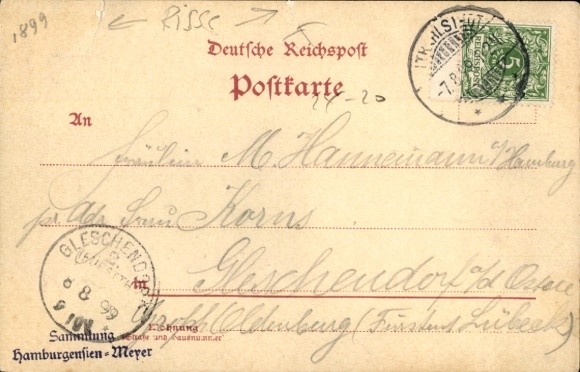 1899
← Risse →
Deutsche Reichspost
Postkarte
24-20
5
An
Fräulein M. Hannemann a/Hamburg
pr. Adr. Frau Korns
in Gleschendorf a/d Ostsee
Oldenburg (Fürstent. Lübeck)
Wohnung
(Straße und Hausnummer)
GLESCHENDORF
8 8 99
Sammlung
Hamburgensien-Meyer